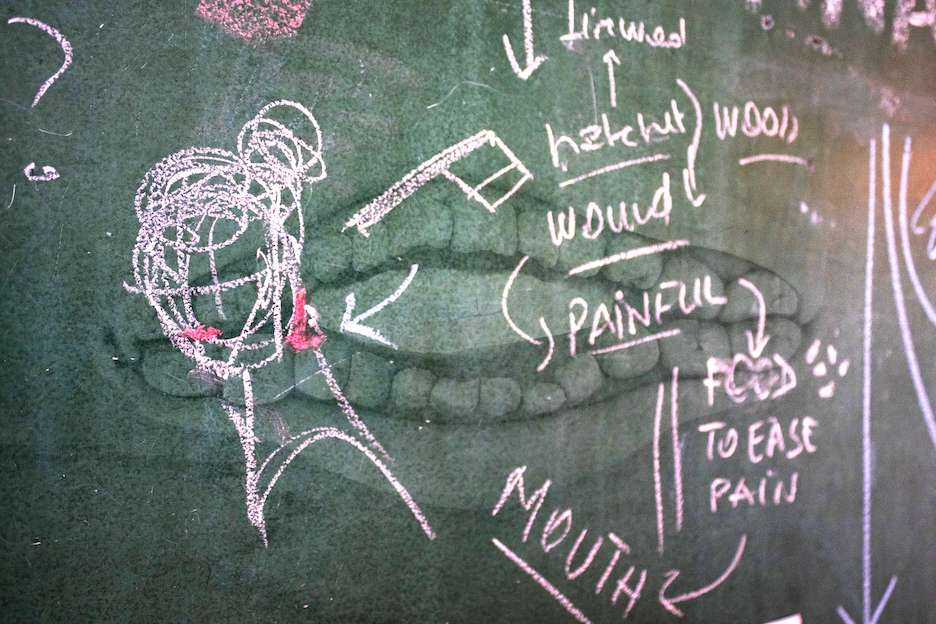 firewood
hatchet
WOOD
WOUND
PAINFUL
FOOD
TO EASE
PAIN
MOUTH